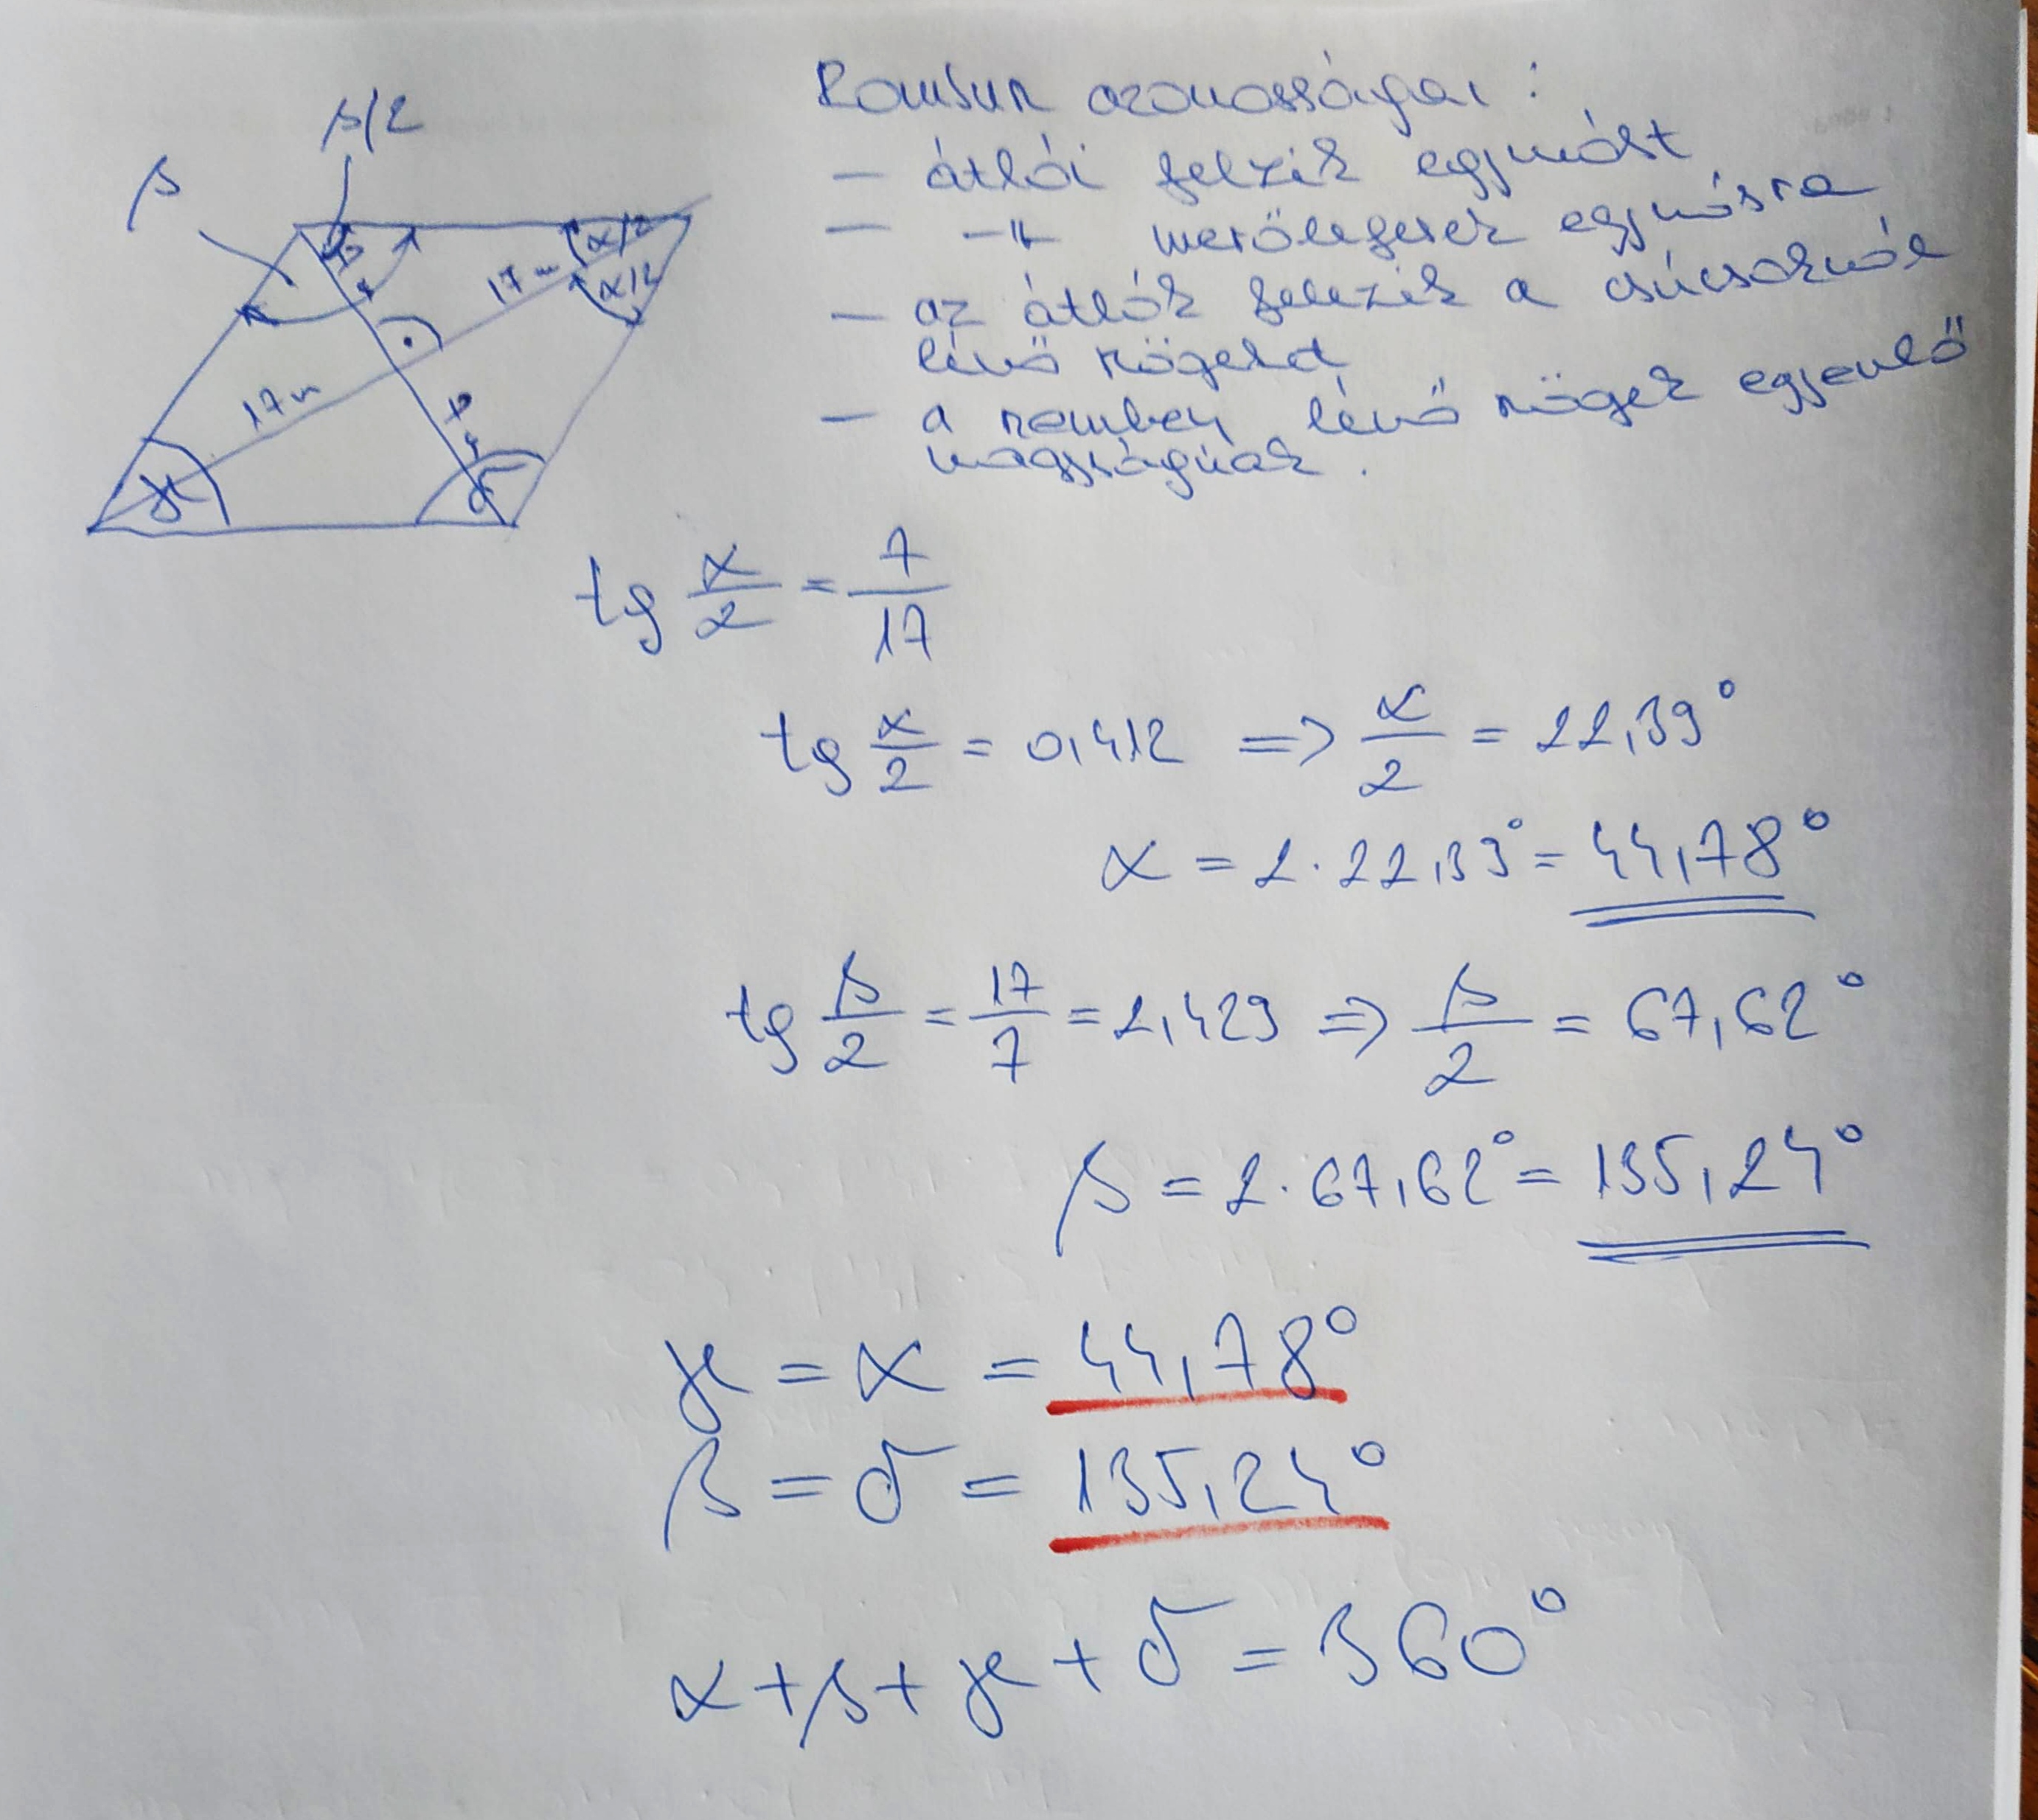 β/2
β
α/2
17 m
α/2
17 m
γ
δ
Rombusz azonosságai :
- átlói felzik egymást
- -"- merőlegesek egymásra
- az átlók felezik a csúcsoknál
lévő szögeket
- a szemben lévő szögek egyenlő
nagyságúak .
tg α/2 = 7/17
tg α/2 = 0,412 => α/2 = 22,39°
α = 2 · 22,39° = 44,78°
tg β/2 = 17/7 = 2,429 => β/2 = 67,62°
β = 2 · 67,62° = 135,24°
γ = α = 44,78°
β = δ = 135,24°
α + β + γ + δ = 360°